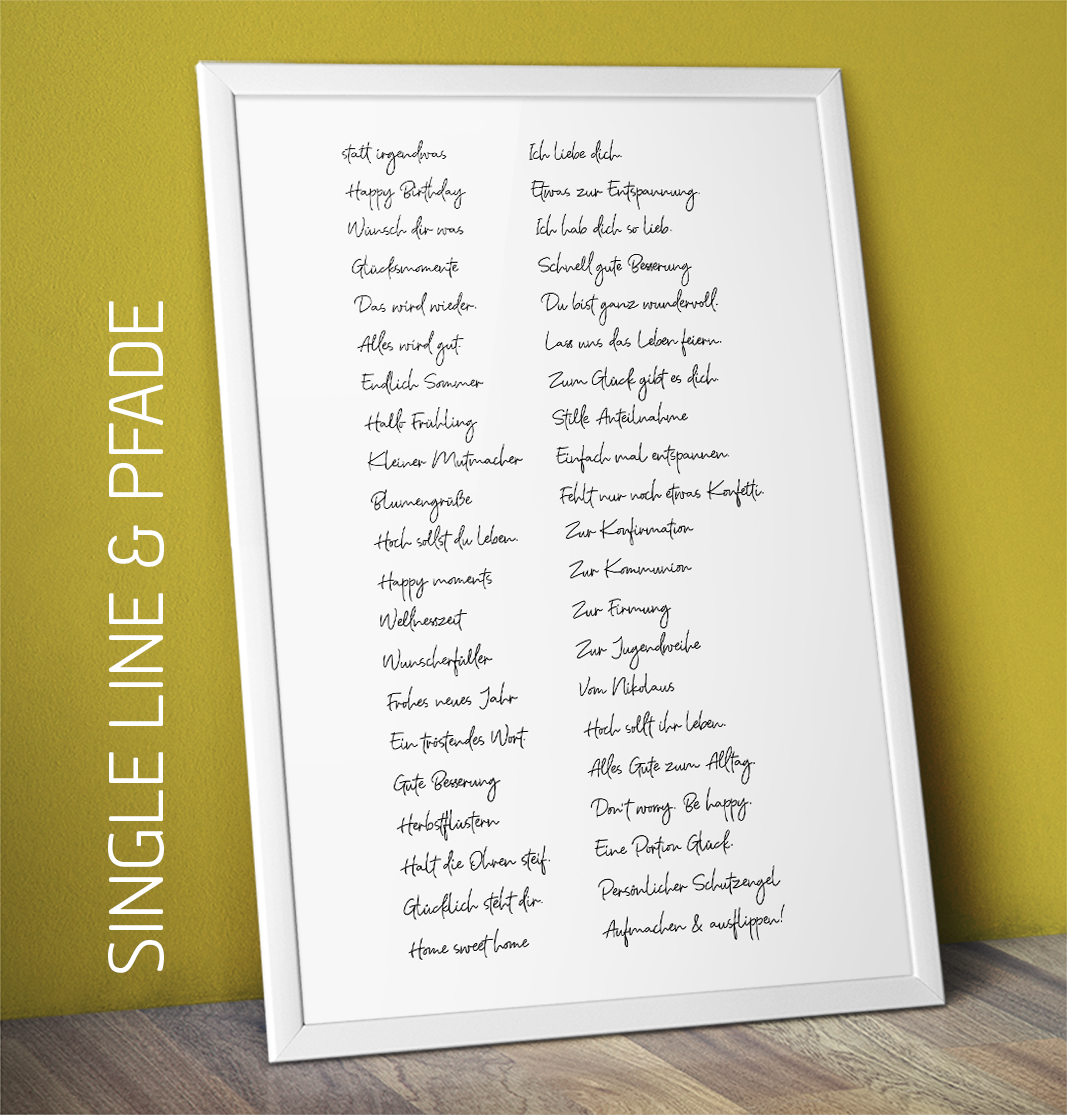 SINGLE LINE & PFADE
statt irgendwas
Happy Birthday
Wünsch dir was
Glücksmomente
Das wird wieder.
Alles wird gut.
Endlich Sommer
Hallo Frühling
Kleiner Mutmacher
Blumengrüße
Hoch sollst du leben.
Happy moments
Wellnesszeit
Wunscherfüller
Frohes neues Jahr
Ein tröstendes Wort.
Gute Besserung
Herbstflüstern
Halt die Ohren steif.
Glücklich steht dir.
Home sweet home
Ich liebe dich.
Etwas zur Entspannung.
Ich hab dich so lieb.
Schnell gute Besserung
Du bist ganz wundervoll.
Lass uns das Leben feiern.
Zum Glück gibt es dich.
Stille Anteilnahme
Einfach mal entspannen.
Fehlt nur noch etwas Konfetti.
Zur Konfirmation
Zur Kommunion
Zur Firmung
Zur Jugendweihe
Vom Nikolaus
Hoch sollt ihr leben.
Alles Gute zum Alltag.
Don't worry. Be happy.
Eine Portion Glück.
Persönlicher Schutzengel
Aufmachen & ausflippen!